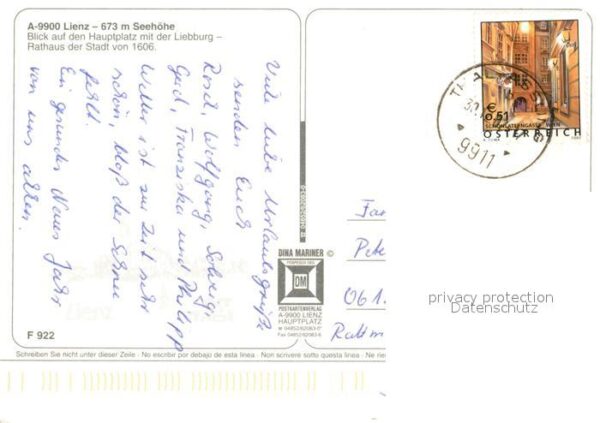 A-9900 Lienz – 673 m Seehöhe
Blick auf den Hauptplatz mit der Liebburg -
Rathaus der Stadt von 1606.
Viele liebe Urlaubsgrüße
senden Euch
Rosel, Wolfgang, Solveig
Gerd, Franziska und Philipp
Wetter ist zur Zeit sehr
schön, bloß der Schnee
fehlt
Ein gesundes Neues Jahr
von uns allen.
F 922
DINA MARINER ©
DM
POSTKARTENVERLAG
A-9900 LIENZ
HAUPTPLATZ
Schreiben Sie nicht unter dieser Zeile - No escribir por debajo de esta linea - Non scrivere sotto questa linea - Ne
€
0,51
SCHÖNLATERNGASSE, WIEN
ÖSTERREICH
9911
Fa
Pete
061
privacy protection
Datenschutz